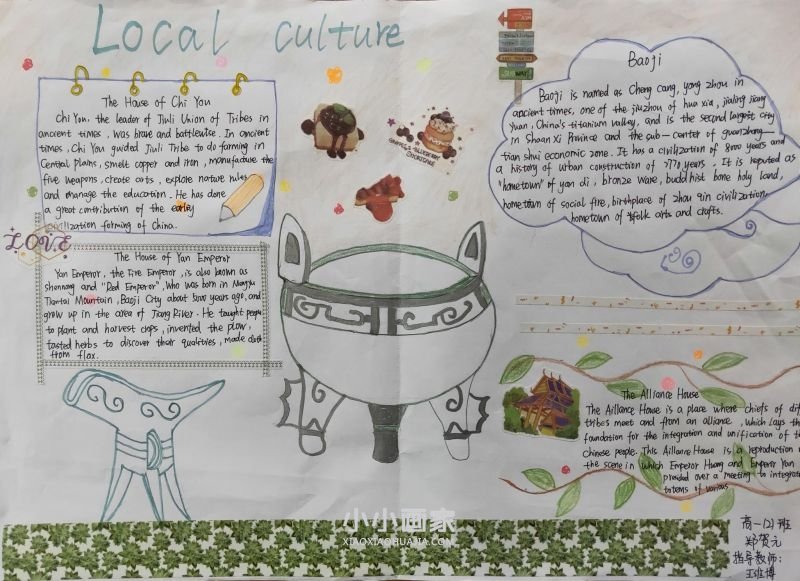 Local culture
The House of Chi You
Chi You, the leader of Jiuli Union of Tribes in
ancient times, was brave and battlewise. In ancient
times, Chi You guided Jiuli Tribe to do farming in
Central plains, smelt copper and iron, manufacture the
five weapons, create arts, explore nature rules
and manage the education. He has done
a great contribution of the early
civilization forming of China.
LOVE
The House of Yan Emperor
Yan Emperor, the Fire Emperor, is also known as
shennong and "Red Emperor", Who was born in
Tiantai Mountain, Baoji City about 5000 years ago, and
grow up in the area of Jiang River. He taught people
to plant and harvest cops, invented the plow,
tasted herbs to discover their qualities, made cloth
from flax.
Baoji
Baoji is named as Cheng cang, yong zhou in
ancient times, one of the jiuzhou of hua xia, jialing jiang
Yuan, China's titanium valley, and is the second largest city
in Shaan Xi Province and the sub-center of guanzhong
tian shui economic zone. It has a civilization of 8000 years and
a history of urban construction of >2770 years. It is reputed as
"hometown" of yan di, bronze ware, buddhist bone holy land,
hometown of social fire, birthplace of zhou qin civilization,
hometown of folk arts and crafts.
The Alliance House
The Aillance House is a place where chiefs of dif
tribes meet and from an alliance, which lays the
foundation for the integration and unification of t
chinese people. This Aillance House is a reproduction o
the scene in which Emperor Huang and Emperor Yan
presided over a meeting to integrate
totems of various
小小画家
XIAOXIAOHUAJIA.COM
高一(2)班
郑贺元
指导教师:
王班博